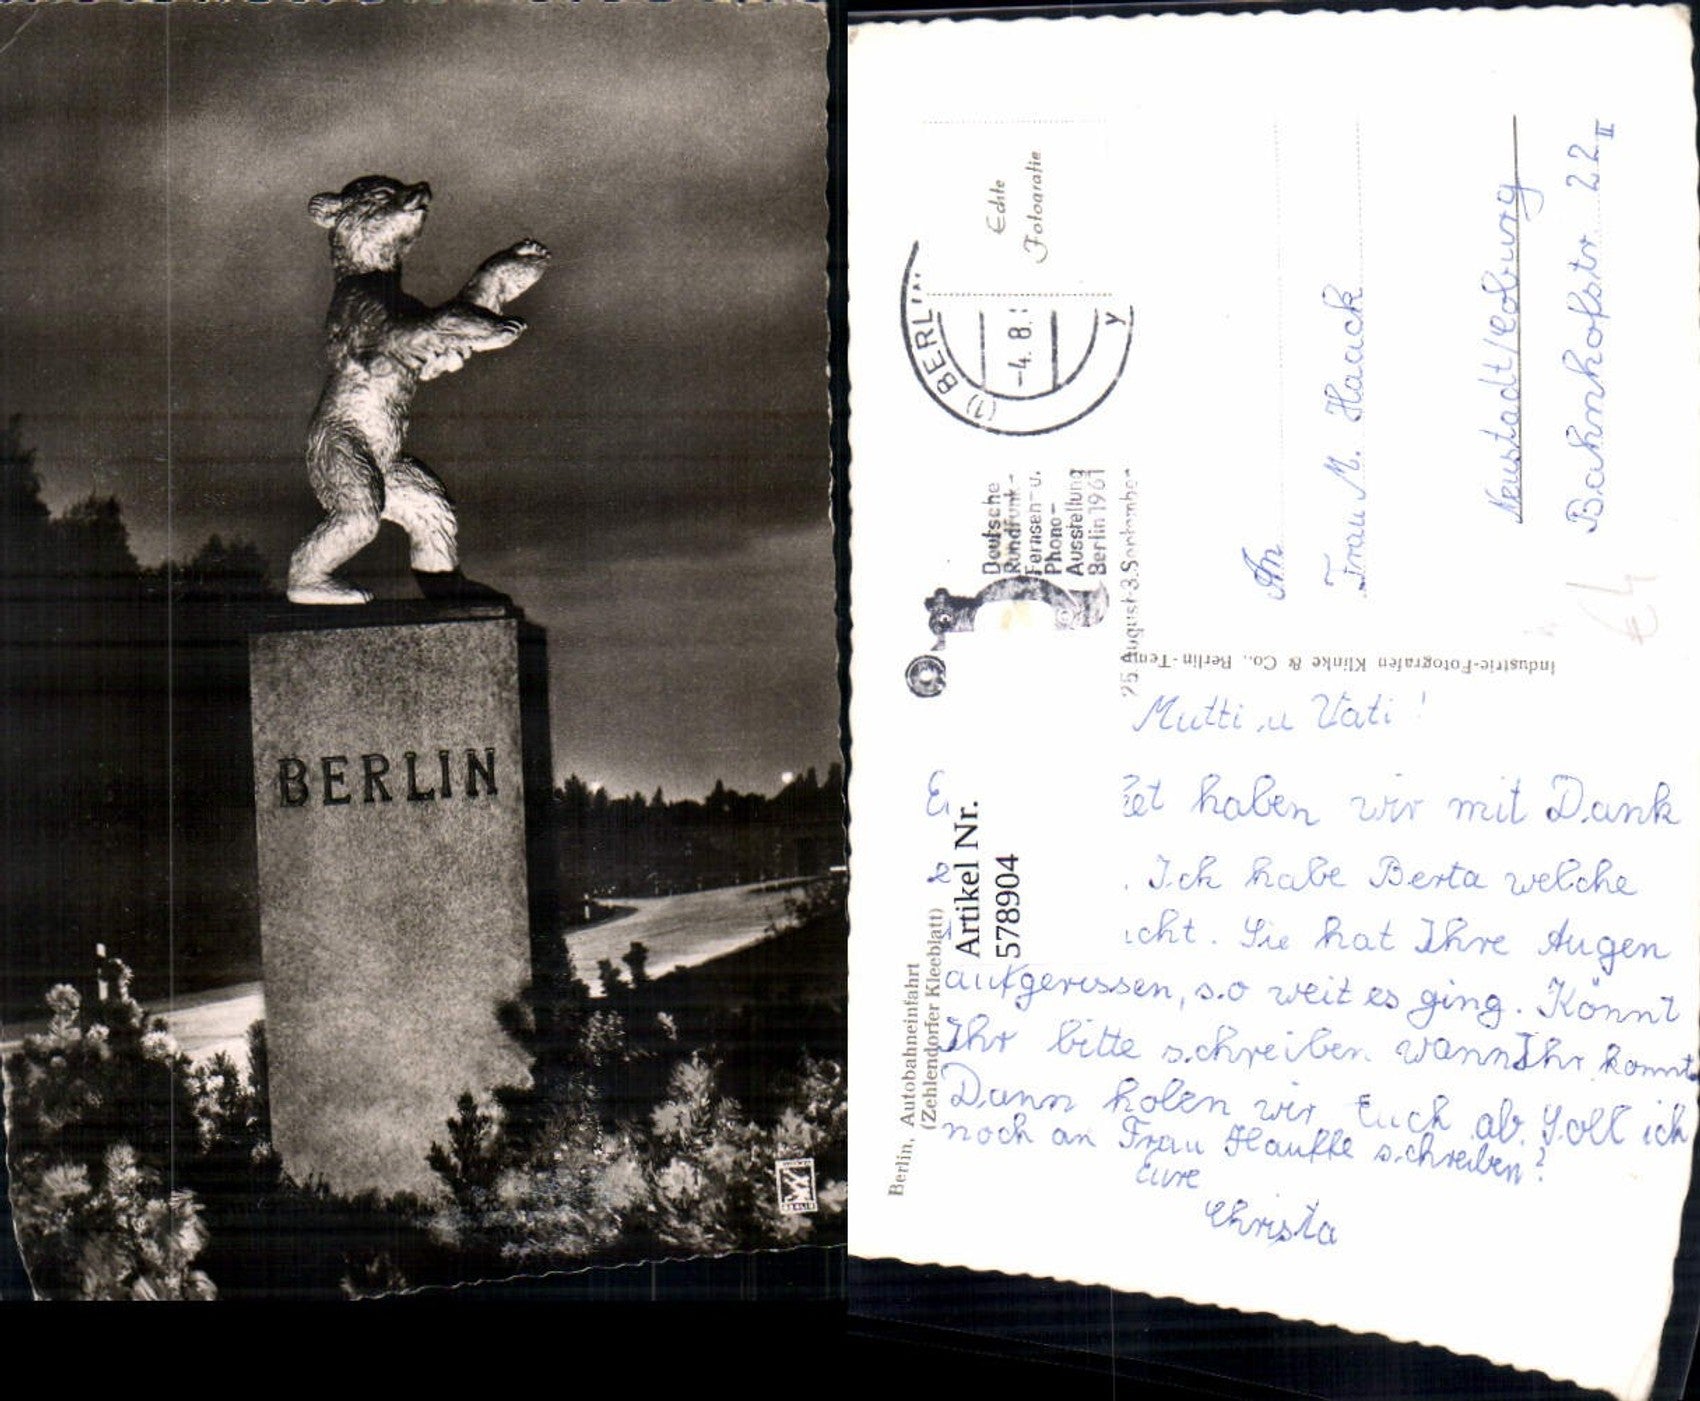 BERLIN
BERLIN
Echte
Fotografie
(1) BERLIN
-4. 8.
y
Deutsche
Rundfunk-
Fernseh- u.
Phono-
Ausstellung
Berlin 1961
25. August-3. September
An
Frau M. Haack
Neustadt/Coburg
Bahnhofstr. 22 II
Industrie-Fotografen Klinke & Co., Berlin-Tem
Mutti u Vati!
haben wir mit Dank
. Ich habe Berta welche
icht. Sie hat Ihre Augen
aufgerissen, so weit es ging. Könnt
Ihr bitte schreiben wann Ihr kommt
Dann holen wir Euch ab. Soll ich
noch an Frau Hauffe schreiben?
Eure
Christa
Artikel Nr.
578904
Berlin, Autobahneinfahrt
(Zehlendorfer Kleeblatt)
€4